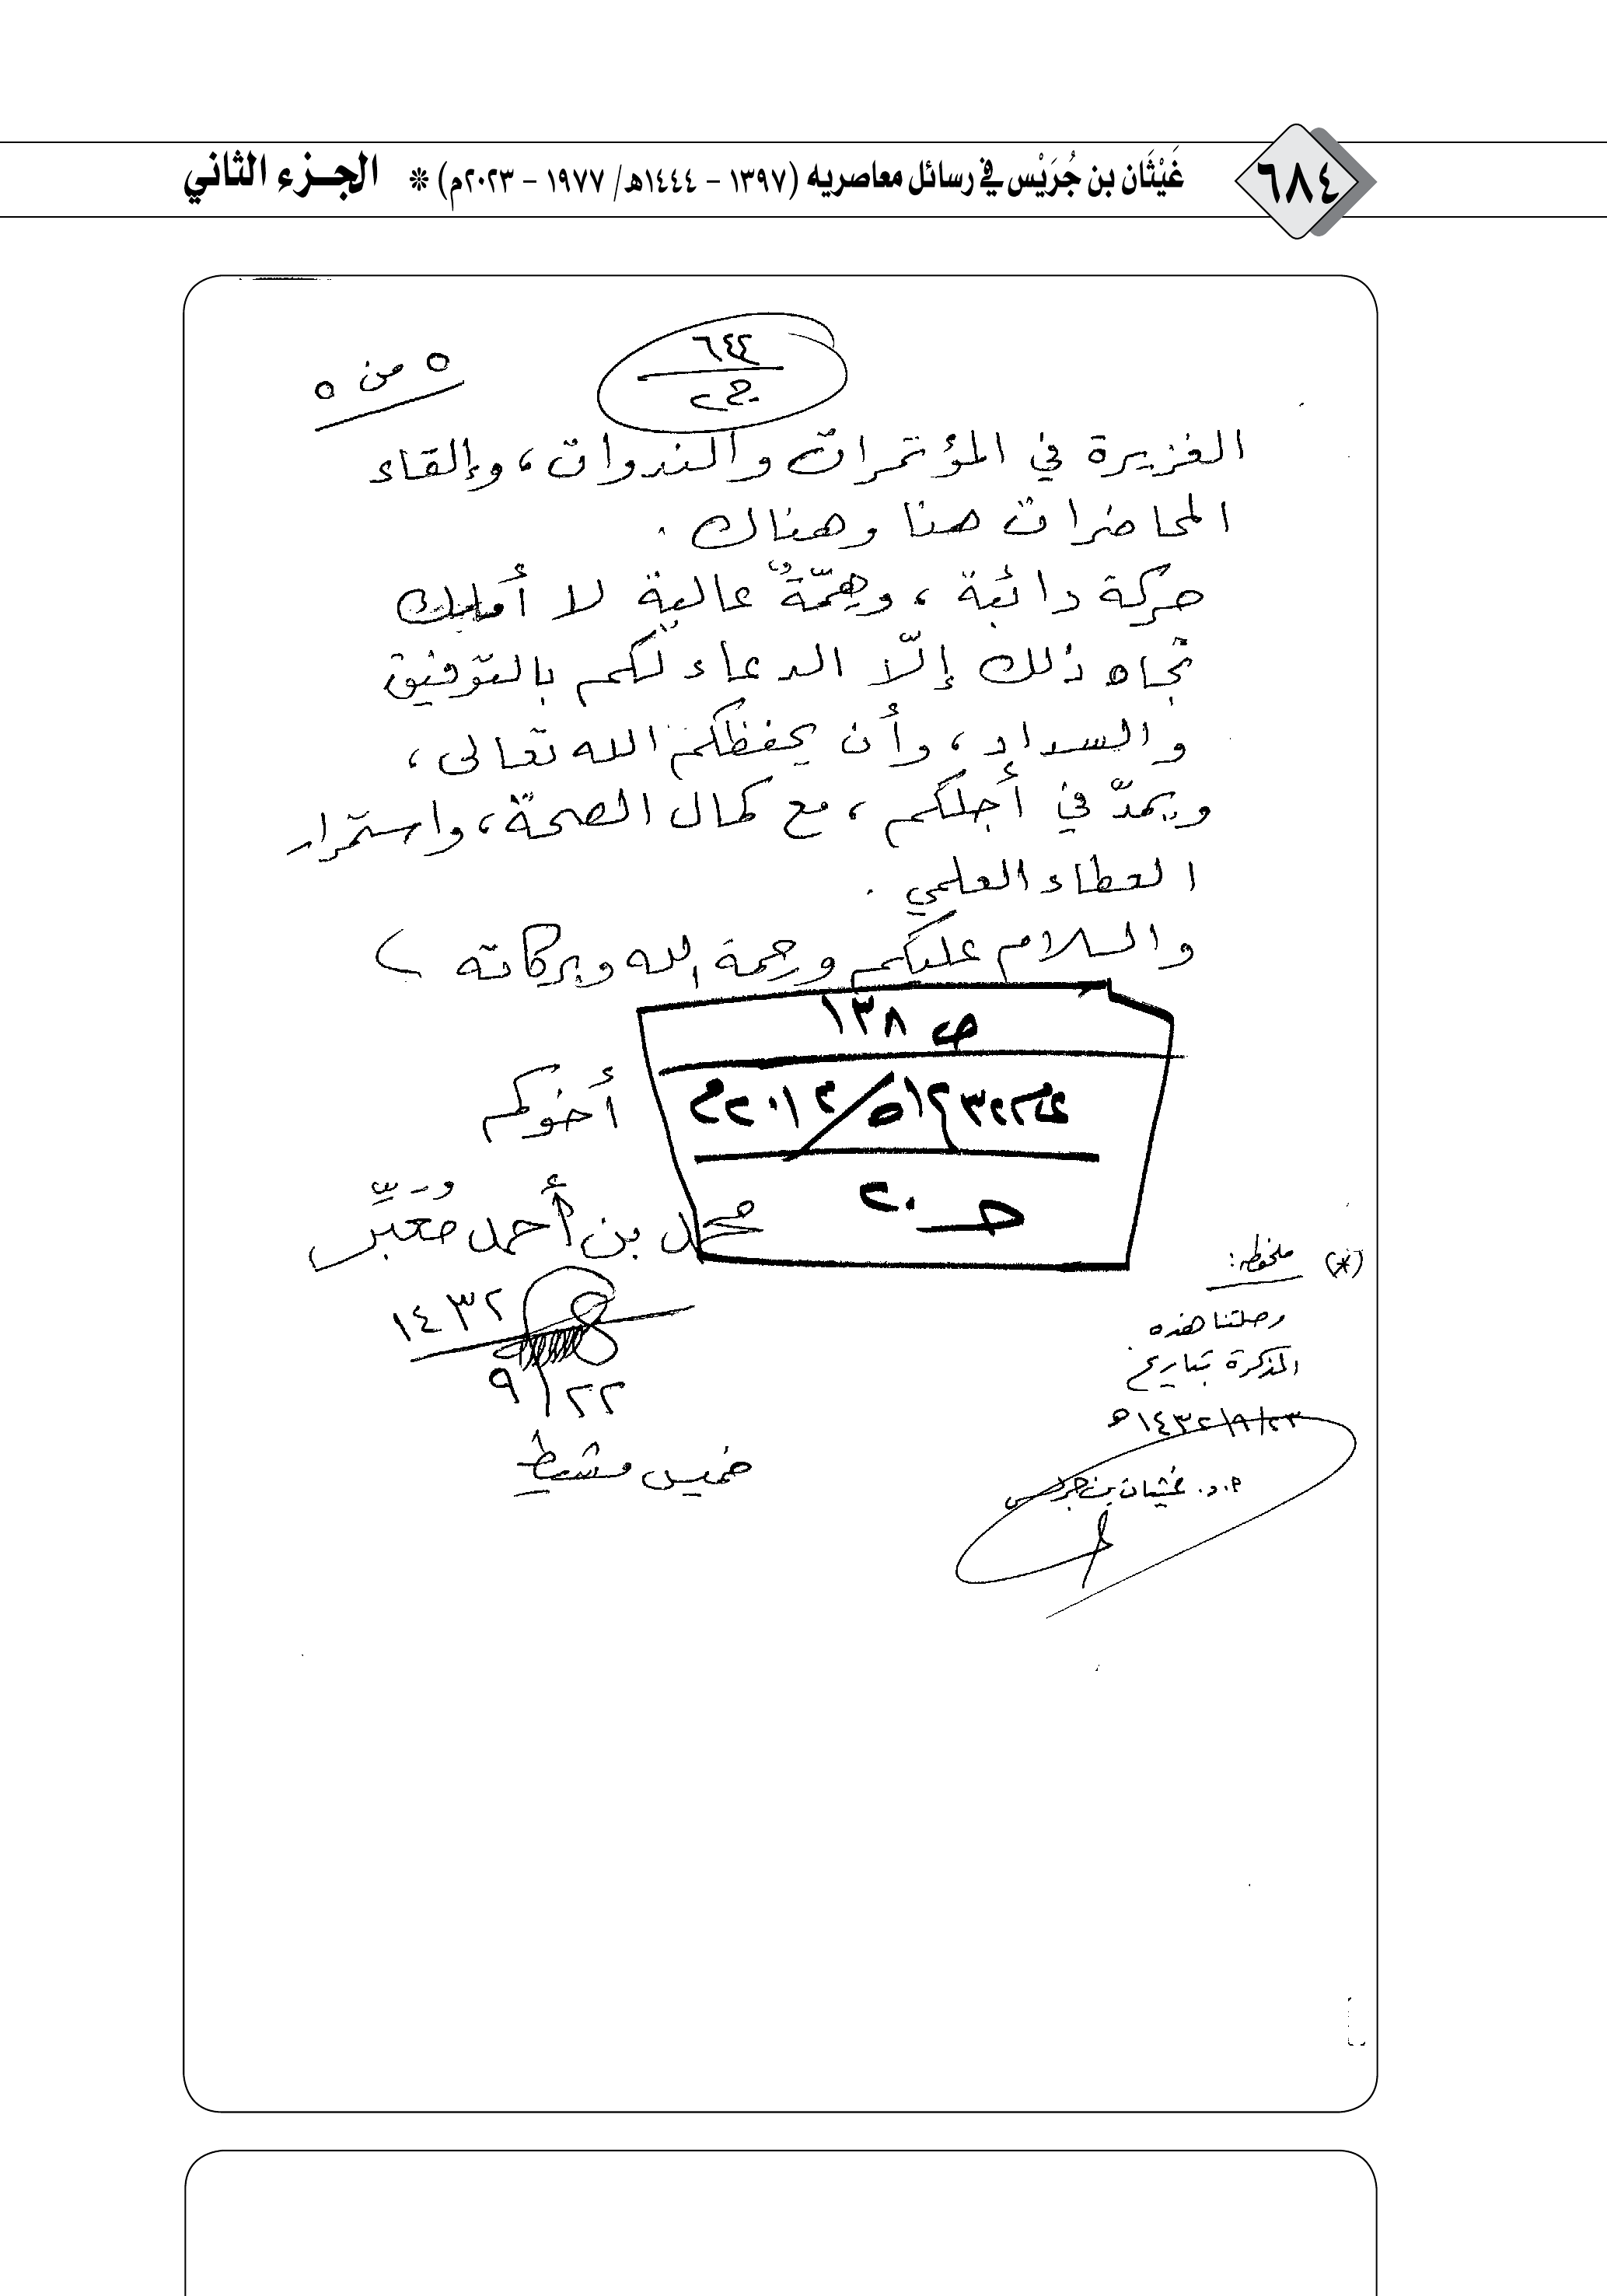 ٦٨٤ غَيْثَان بن جُرَيْس في رسائل معاصريه (١٣٩٧ - ١٤٤٤هـ/ ١٩٧٧ - ٢٠٢٣م) * الجـزء الثاني
٥ من ٥
٦٤٤
ج٢
الغزيرة في المؤتمرات والندوات، وإلقاء
المحاضرات هنا وهناك.
حركة دائبة، وهِمّةٌ عالية لا أملك
تجاه ذلك إلّا الدعاء لكم بالتوفيق
والسداد، وأن يحفظكم الله تعالى،
ويمدّ في أجلكم، مع كمال الصحة، واستمرار
العطاء العلمي.
والسلام عليكم ورحمة الله وبركاته)
ص ١٣٨
٢٠١٢م
حـ ٢٠
أخوكم
محمد بن أحمد مُعَبِّر
١٤٣٢
٩/٢٢
خميس مشيط
(*) ملحظه:
وصلتنا هذه
المذكرة بتاريخ
١٤٣٢/٩/٢٣هـ
أ.د. غيثان بن جريس